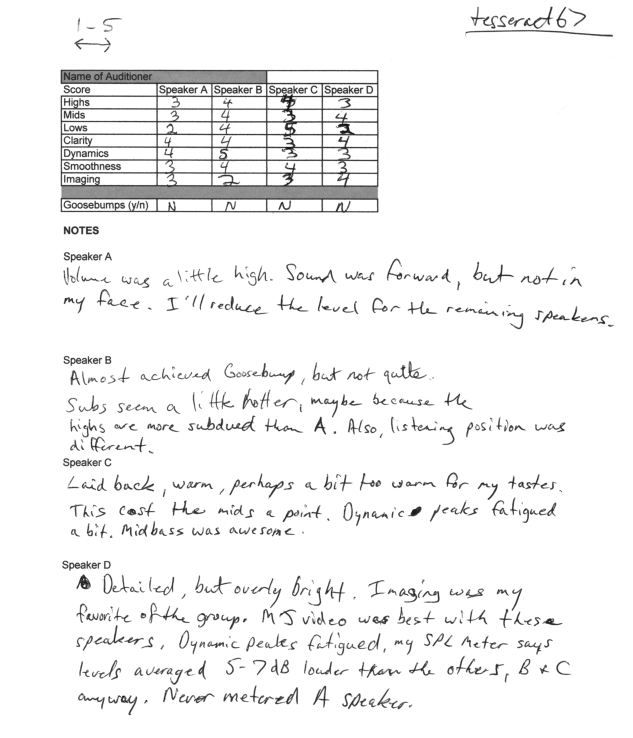 1-5
tesseract67
Name of Auditioner
Score Speaker A Speaker B Speaker C Speaker D
Highs 3 4 4 3
Mids 3 4 3 4
Lows 2 4 5 2
Clarity 4 4 3 4
Dynamics 4 5 3 3
Smoothness 3 4 4 3
Imaging 3 2 3 4
Goosebumps (y/n) N N N N
NOTES
Speaker A
Volume was a little high. Sound was forward, but not in
my face. I'll reduce the level for the remaining speakers.
Speaker B
Almost achieved Goosebump, but not quite.
Subs seem a little hotter, maybe because the
highs are more subdued than A. Also, listening position was
different.
Speaker C
Laid back, warm, perhaps a bit too warm for my tastes.
This cost the mids a point. Dynamic peaks fatigued
a bit. Midbass was awesome.
Speaker D
Detailed, but overly bright. Imaging was my
favorite of the group. MJ video was best with these
speakers, Dynamic peaks fatigued, my SPL Meter says
levels averaged 5-7dB louder than the others, B & C
anyway. Never metered A speaker.